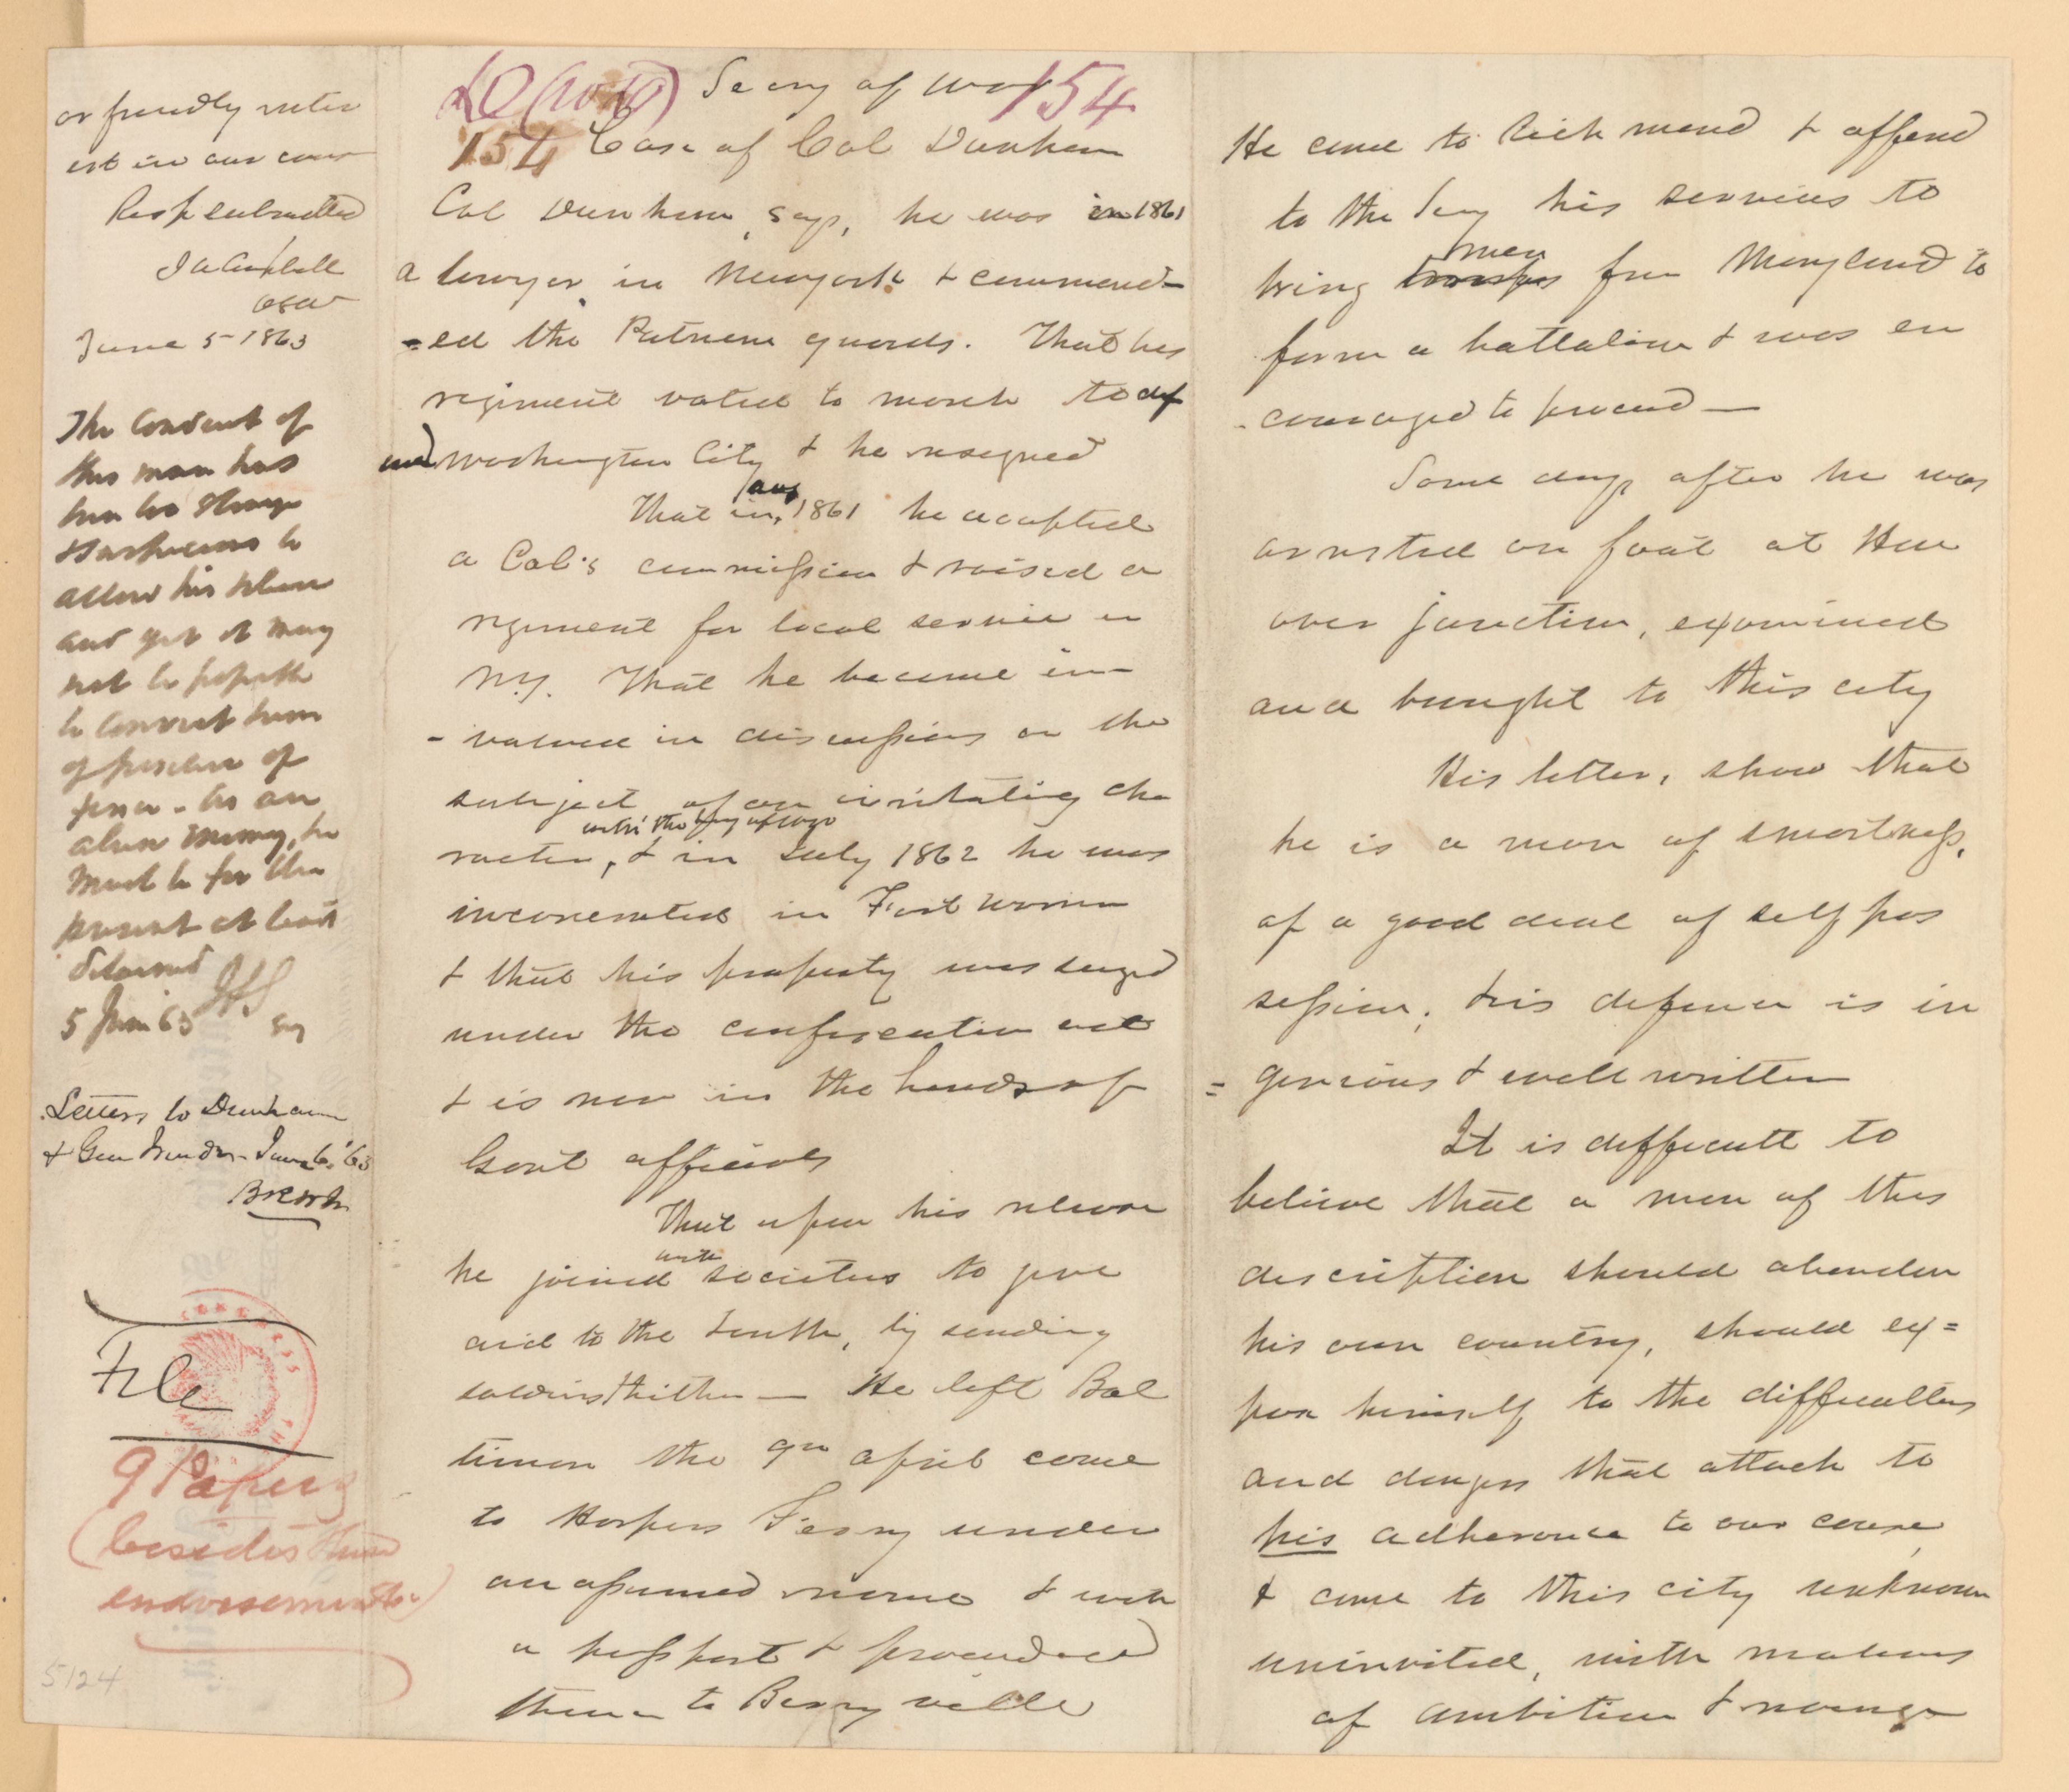 or friendly inter
est in our cause
Resp submitted
J A Campbell
ASW
June 5 1863
The Conduct of
this man has
been too strange
& suspicious to
allow his release
and yet it may
not be possible
to convict him
of positive of
fence - As an
alien enemy, he
must be for the
present at least
detained
5 June '63 JAS
Sy
Letters to Dunham
& Gen Winder - June 6, '63
File
9 Papers
(besides these
endorsements)
5124
154
Secry of War
154 Case of Col Dunham
Col Dunham, says, he was in 1861
a lawyer in New York & command-
=ed the Putnam guards. That his
regiment voted to march to def
end Washington City & he resigned
That in Aug 1861 he accepted
a Col's commission & raised a
regiment for local service in
N.Y. That he became in-
-volved in discussions on the
subject of an irritating cha
with the Secy of War
racter, & in July 1862 he was
incarcerated in Fort Warren
& that his property was seized
under the confiscation act
& is now in the hands of
Govt officials
That upon his release
he joined with societies to give
aid to the South, by sending
soldiers thither — He left Bal
timore the 9th april came
to Harpers Ferry under
an assumed name & with
a passport & proceeded
thence to Berryville
He came to Richmond & offered
to the Secy his services to
men
bring troops from Maryland to
form a battalion & was en
-couraged to proceed —
Some days after he was
arrested on foot at Han
over junction, examined
and brought to this city
His letters, show that
he is a man of smartness,
of a good deal of self pos
session; His defence is in
=genious & well written
It is difficult to
believe that a man of this
description should abandon
his own country, should ex=
pose himself to the difficulties
and dangers that attach to
his adherence to our cause,
& come to this city unknown
uninvited, with motives
of ambition & revenge